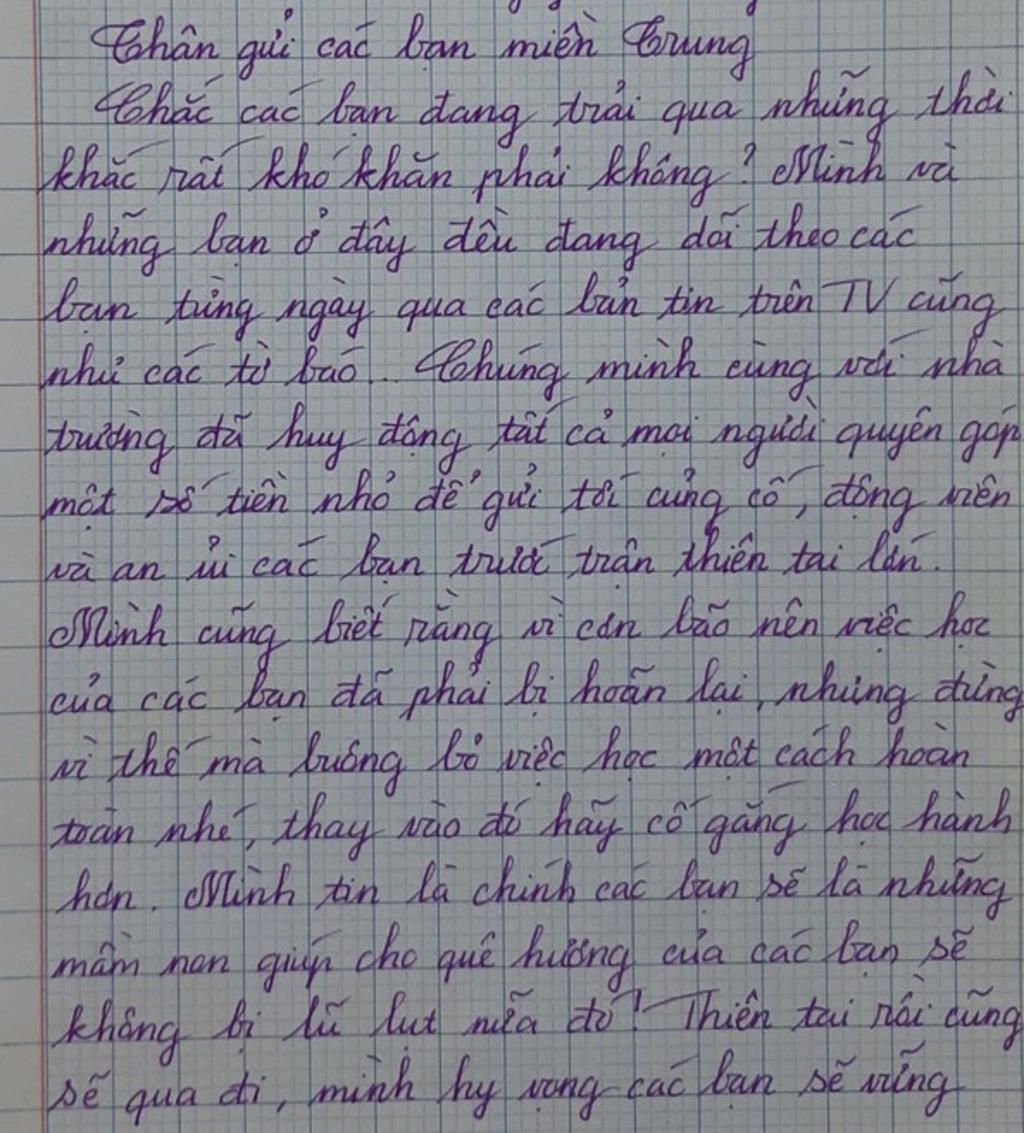 Thân gửi các bạn miền Trung
Chắc các bạn đang trải qua những thời
khắc rất khó khăn phải không? Mình và
những bạn ở đây đều đang dõi theo các
bạn từng ngày qua các bản tin trên TV cũng
như các tờ báo... Chúng mình cùng với nhà
trường đã huy động tất cả mọi người quyên góp
một số tiền nhỏ để gửi tới củng cố, động viên
và an ủi các bạn trước trận thiên tai lớn.
Mình cũng biết rằng vì cơn bão nên việc học
của các bạn đã phải bị hoãn lại, nhưng đừng
vì thế mà buông bỏ việc học một cách hoàn
toàn nhé, thay vào đó hãy cố gắng học hành
hơn. Mình tin là chính các bạn sẽ là những
mầm non giúp cho quê hương của các bạn sẽ
không bị lũ lụt nữa đó! Thiên tai rồi cũng
sẽ qua đi, mình hy vọng các bạn sẽ vững